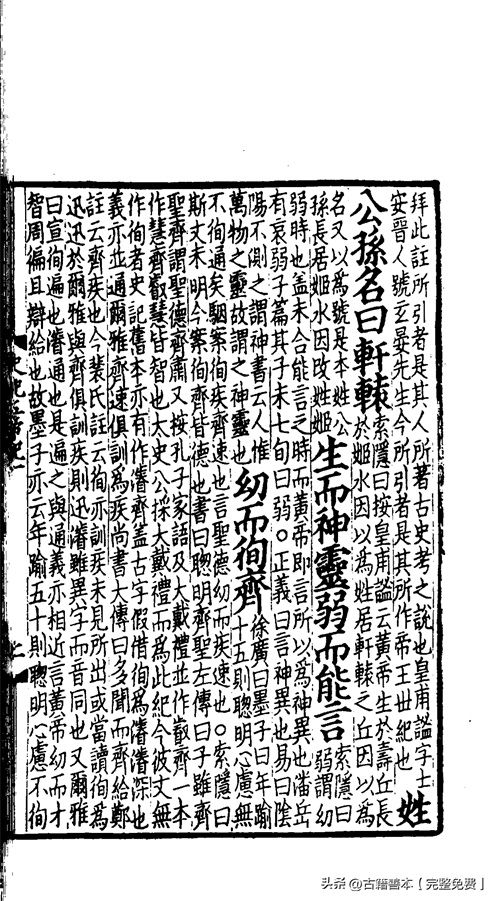 拜此註所引者是其人所著古史考之說也皇甫謐字士
安晉人號玄晏先生今所引者是其所作帝王世紀也
姓
公孫名曰軒轅
索隱曰按皇甫謐云黃帝生於壽丘長
於姬水因以為姓居軒轅之丘因以為
名又以為號是本姓公
孫長居姬水因改姓姬
生而神靈弱而能言
索隱曰
弱謂幼
弱時也盖未合能言之時而黃帝即言所以為神異也潘岳
有哀弱子篇其子未七旬曰弱○正義曰言神異也易曰陰
陽不測之謂神書云人惟
萬物之靈故謂之神靈也
幼而徇齊
徐廣曰墨子曰年踰
十五則聰明心慮無
不徇通矣駰案徇疾齊速也言聖德幼而疾速也○索隱曰
斯文未明今案徇齊皆德也書曰聰明齊聖左傳曰子雖齊
聖齊謂聖德齊肅又按孔子家語及大戴禮並作叡齊一本
作慧齊叡慧皆智也太史公採大戴禮而為此紀今彼文無
作徇者史記舊本亦有作濬齊盖古字假借徇為濬濬深也
義亦並通爾雅齊速俱訓為疾尚書大傳曰多聞而齊給鄭
註云齊疾也今裴氏註云徇亦訓疾未見所出或當讀徇為
迅迅於爾雅與齊俱訓疾則迅濬雖異字而音同也又爾雅
曰宣徇遍也濬通也是遍之與通義亦相近言黃帝幼而才
智周徧且辯給也故墨子亦云年踰五十則聰明心慮不徇
头条 @古籍善本【完整免费】